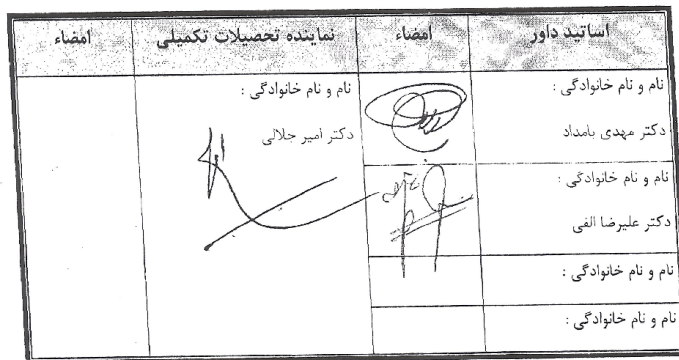 اساتید داور	امضاء	نماینده تحصیلات تکمیلی	امضاء
نام و نام خانوادگی :	نام و نام خانوادگی :
دکتر مهدی بامداد	دکتر امیر جلالی
نام و نام خانوادگی :
دکتر علیرضا الفی
نام و نام خانوادگی :
نام و نام خانوادگی :